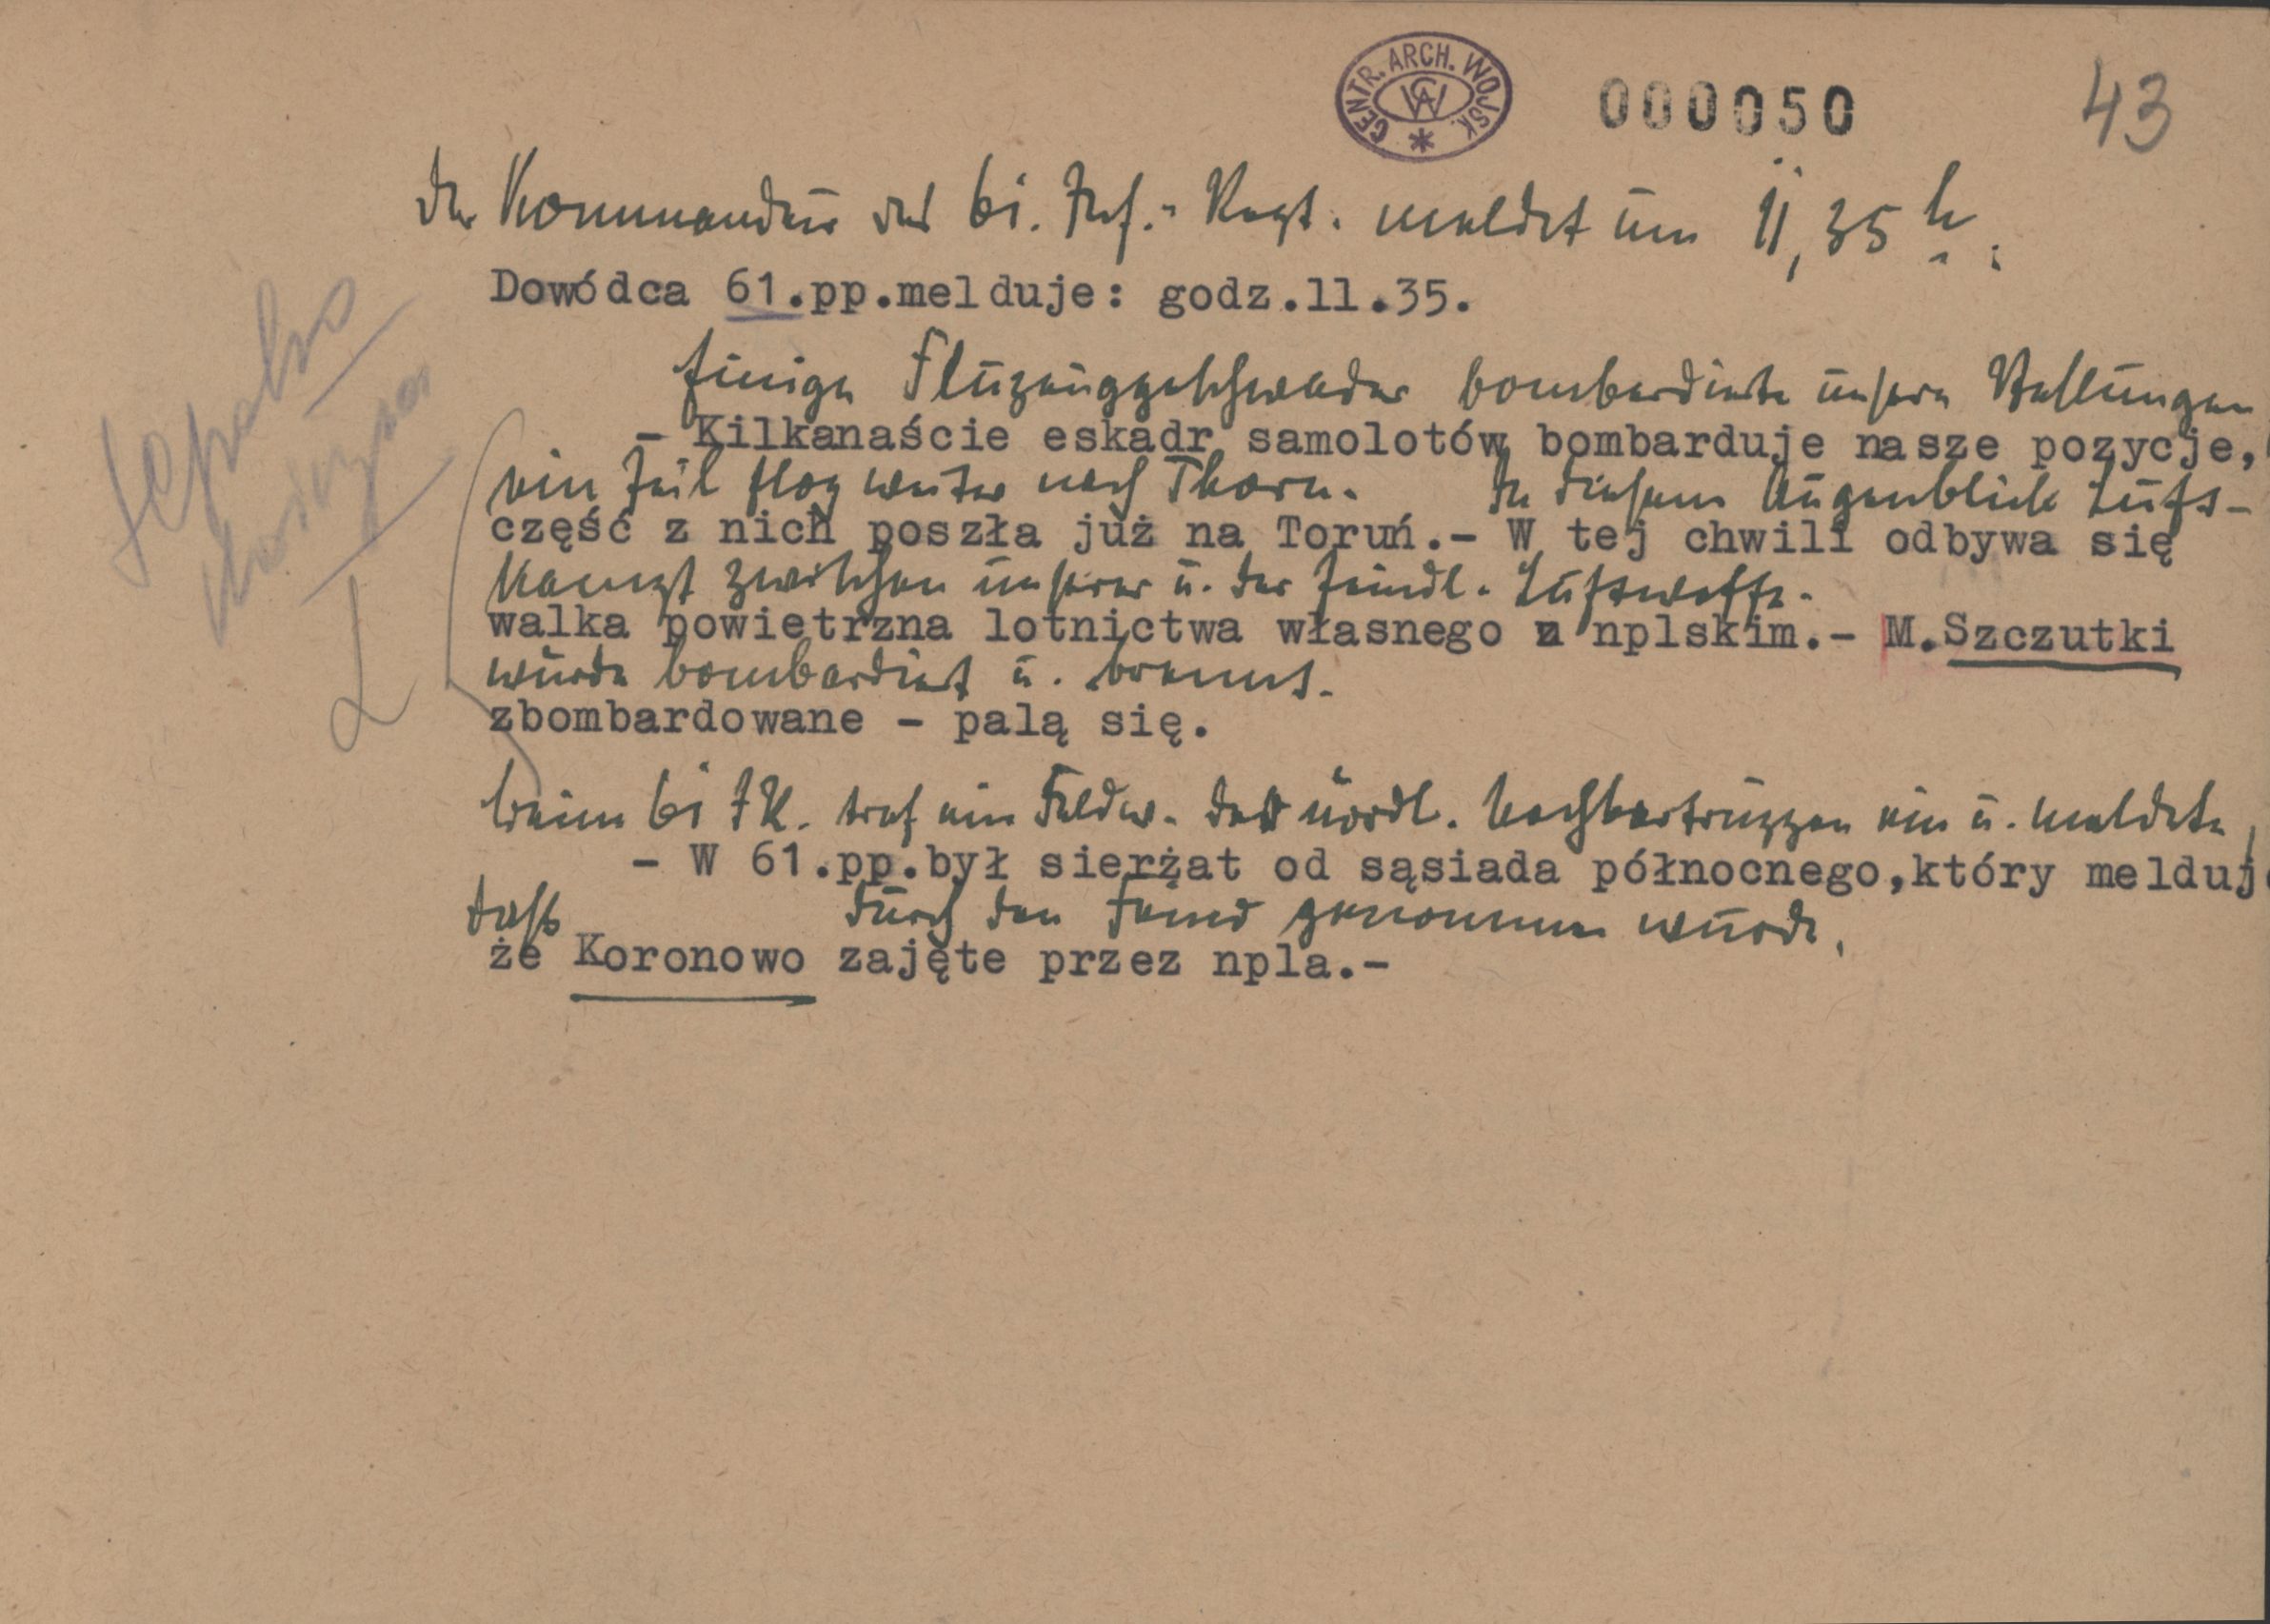 CENTR. ARCH. WOJSK.
CAW
000050
43
Der Kommandeur des 61. Inf.-Regt. meldet um 11,35 h.:
Dowódca 61.pp.melduje: godz.11.35.
Einige Flugzeuggeschwader bombardierte unsere Stellungen
- Kilkanaście eskadr samolotów bombarduje nasze pozycje,
ein Teil flog weiter nach Thorn. In diesem Augenblick Luft-
część z nich poszła już na Toruń.- W tej chwili odbywa się
kampf zwischen unserer u. der feindl. Luftwaffe.
walka powietrzna lotnictwa własnego z nplskim.- M.Szczutki
wurde bombardiert u. brennt.
zbombardowane - palą się.
beim 61 IR. traf ein Feldw. der nördl. Nachbartruppen ein u. meldete,
- W 61.pp.był sierżat od sąsiada północnego,który melduj
daß durch den Feind genommen wurde.
że Koronowo zajęte przez npla.-